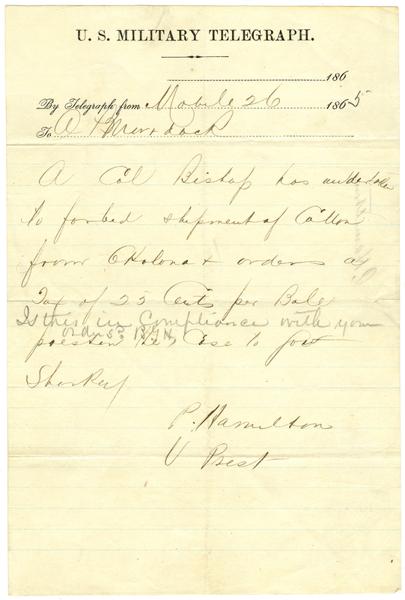 U. S. MILITARY TELEGRAPH.
186
By Telegraph from Mobile 26 1865
To A Murdock
A Col Bistop has undertaken
to forbid shipment of Cotton
from Okolona & orders a
Tax of 25 Cts per Bale
Is this in compliance with your
orders
please to Gov
Sharkey
P. Hamilton
V Prest